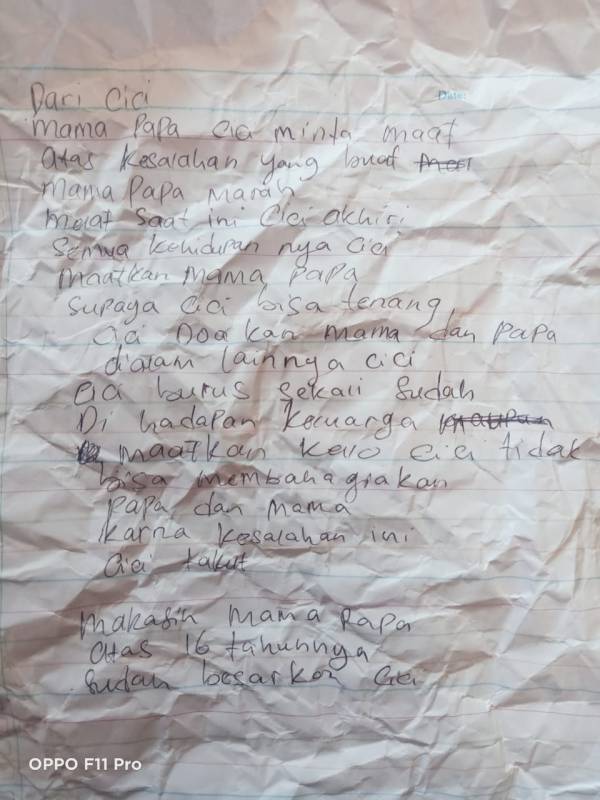 Date:
Dari Cici
mama papa cici minta maaf
atas kesalahan yang buat
mama papa marah
saat ini cici akhiri
semua kehidupan nya cici
maafkan mama papa
supaya cici bisa tenang
cici Doa kan mama dan papa
dialam lainnya cici
cici burus sekali sudah
Di hadapan keluarga
maafkan kalo cici tidak
bisa membahagiakan
papa dan mama
karna kesalahan ini
cici takut
makasih mama papa
atas 16 tahunnya
sudah besarkan cici
OPPO F11 Pro